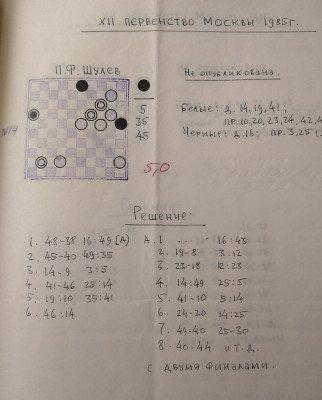 XII первенство Москвы 1985г.
П.Ф. Шулев
Не опубликована.
5
35
45
Белые: д. 14,19,41;
пр. 10,20,23,24,42,4
Черные: д. 16; пр. 3,25
№14
5,0
Решение:
1. 48-38 16:49 [A]
2. 45-40 49:35
3. 14-9 3:5
4. 41-46 25:14
5. 19:10 35:41
6. 46:14
А. 1 .... 16:43
2. 19-8 3:12
3. 23-18 12:23
4. 14:49 25:5
5. 41-10 5:14
6. 24-20 14:25
7. 49-40 25-30
8. 40-44 и т.д.
с двумя финалами.